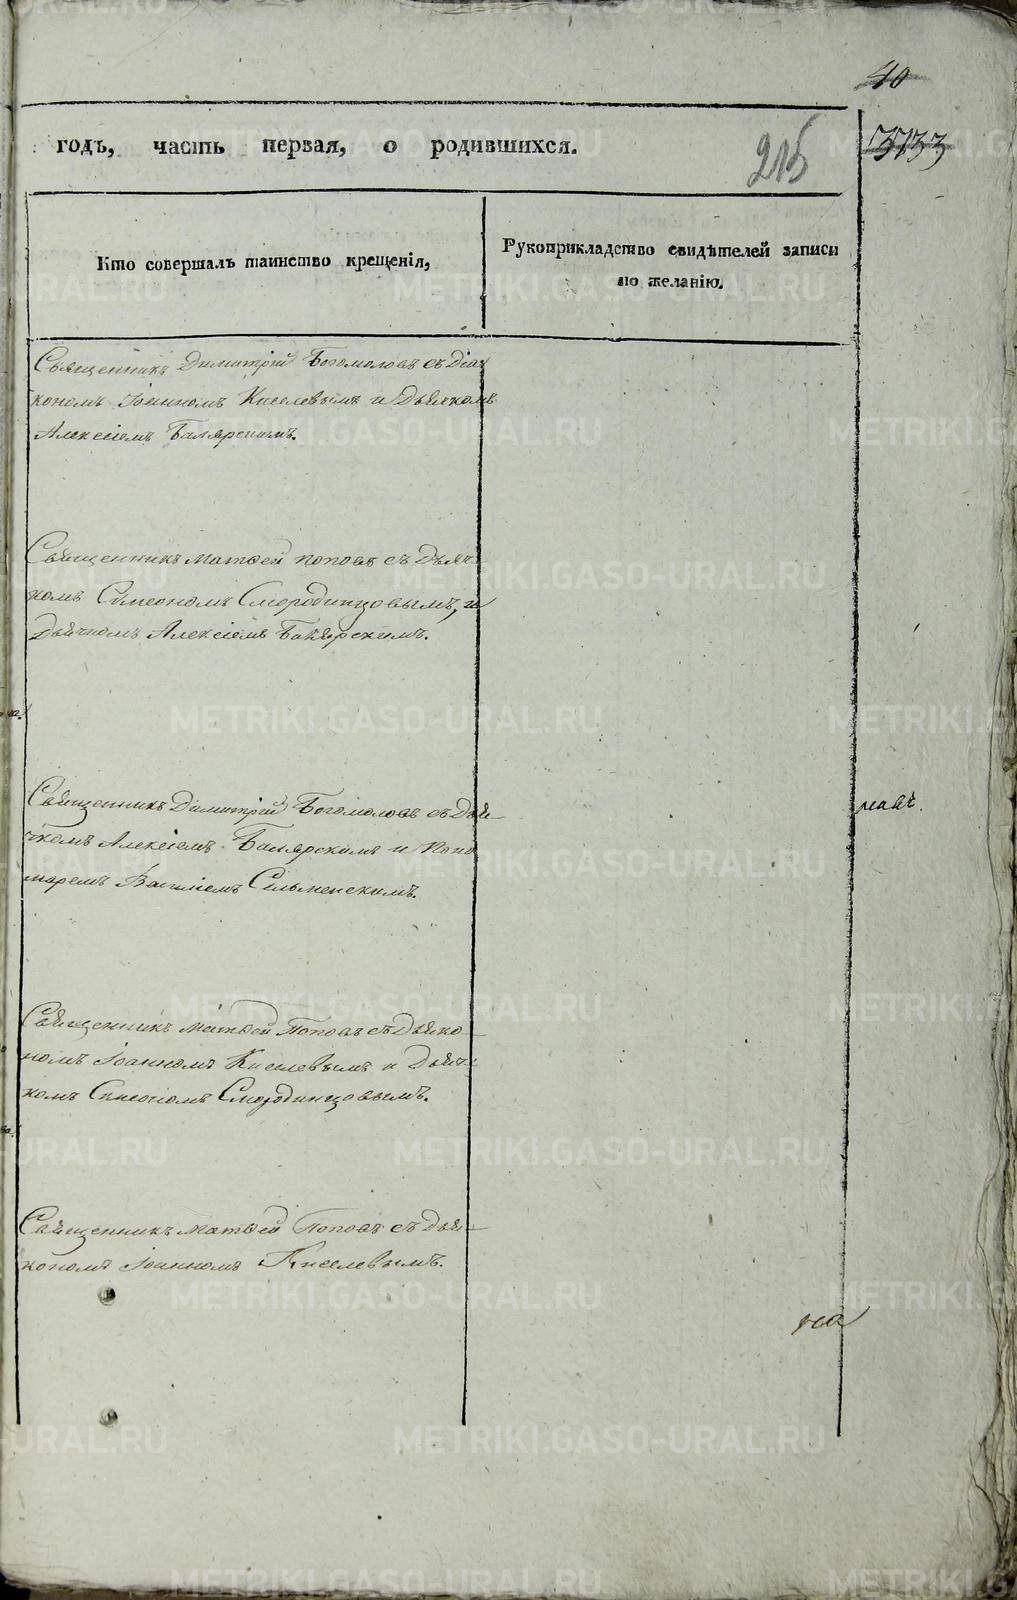 40
годъ, часть первая, о родившихся.
215
3733
Кто совершалъ таинство крещенія,
Рукоприкладство свидѣтелей записи
по желанію.
Священникъ Димитрій Богомоловъ съ Діа
кономъ Іоанномъ Киселевымъ и Дьячкомъ
Алексіемъ Балярскимъ.
Священникъ Матѳей Поповъ съ Дьяч
комъ Симеономъ Смородинцовымъ, и
Дьячкомъ Алексіемъ
Священникъ Димитрій Богомоловъ съ Дья
чкомъ Алексіемъ Балярскимъ и Поно
маремъ Василіемъ Сельменскимъ.
Священникъ Матѳей Поповъ съ Діако
номъ Іоанномъ Киселевымъ и Дьяч
комъ Симеономъ Смородинцовымъ.
Священникъ Матѳей Поповъ съ Діа
кономъ Іоанномъ Киселевымъ.
на
METRIKI.GASO-URAL.RU